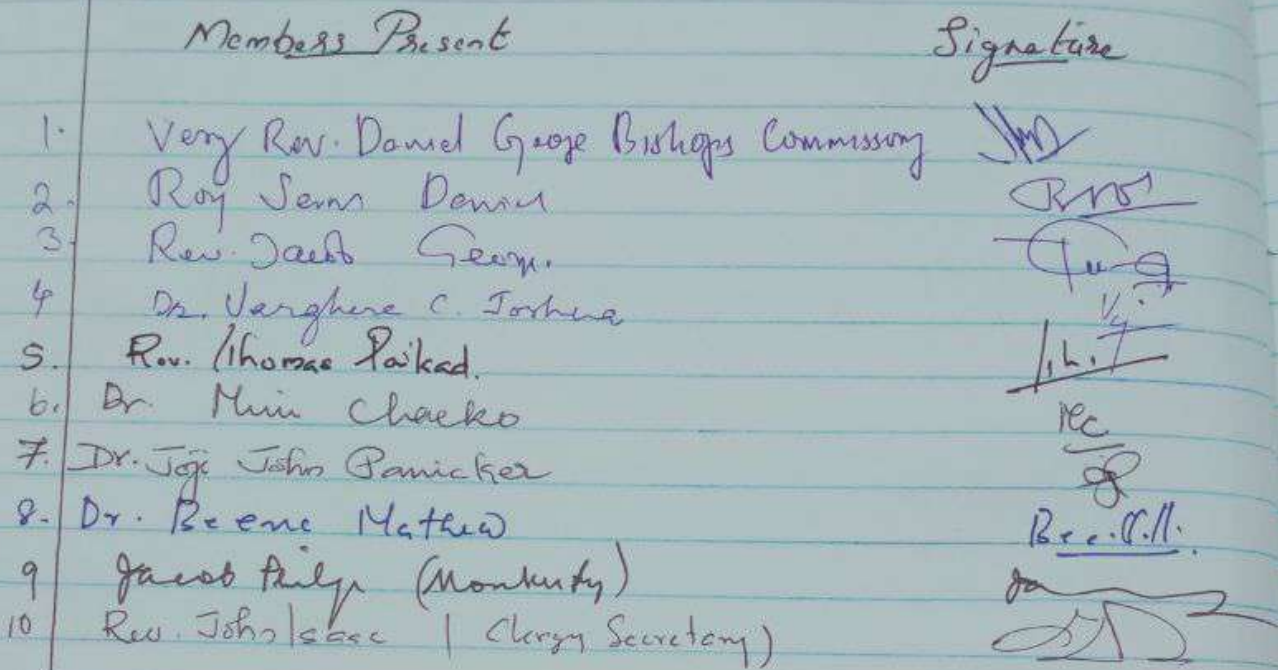 Members Present Signature
1. Very Rev. Daniel George Bishops Commissary
2. Roy Daniel
3. Rev. Jacob George.
4 Dr. Varghese C. Joshua
5. Rev. Thomas Paikad.
6. Dr. Mini Chacko
7. Dr. Joji John Panicker
8. Dr. Beena Mathew
9 Jacob Philip (Monkutty)
10 Rev. John Isaac (Clergy Secretary)